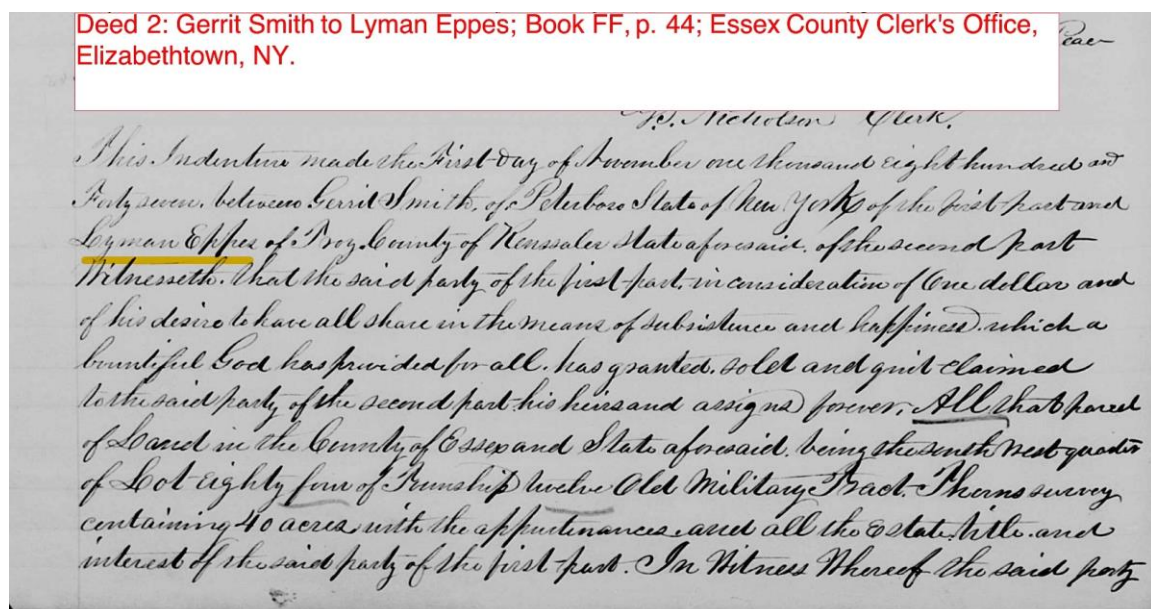 Deed 2: Gerrit Smith to Lyman Eppes; Book FF, p. 44; Essex County Clerk's Office,
Elizabethtown, NY.
Nicholson Clerk.
This Indenture made the First day of November one thousand eight hundred and
Forty seven. between Gerrit Smith, of Peterboro State of New York of the first part and
Lyman Eppes of Troy County of Renssaler State aforesaid. of the second part
Witnesseth. that the said party of the first part. in consideration of One dollar and
of his desire to have all share in the means of subsistence and happiness which a
bountiful God has provided for all. has granted. sold and quit claimed
to the said party of the second part his heirs and assigns forever, All that parcel
of Land in the County of Essex and State aforesaid. being the south west quarter
of Lot eighty four of Township twelve Old Military Tract. Thorns survey
containing 40 acres with the appurtenances and all the Estate. title. and
interest of the said party of the first part. In Witness Whereof the said party